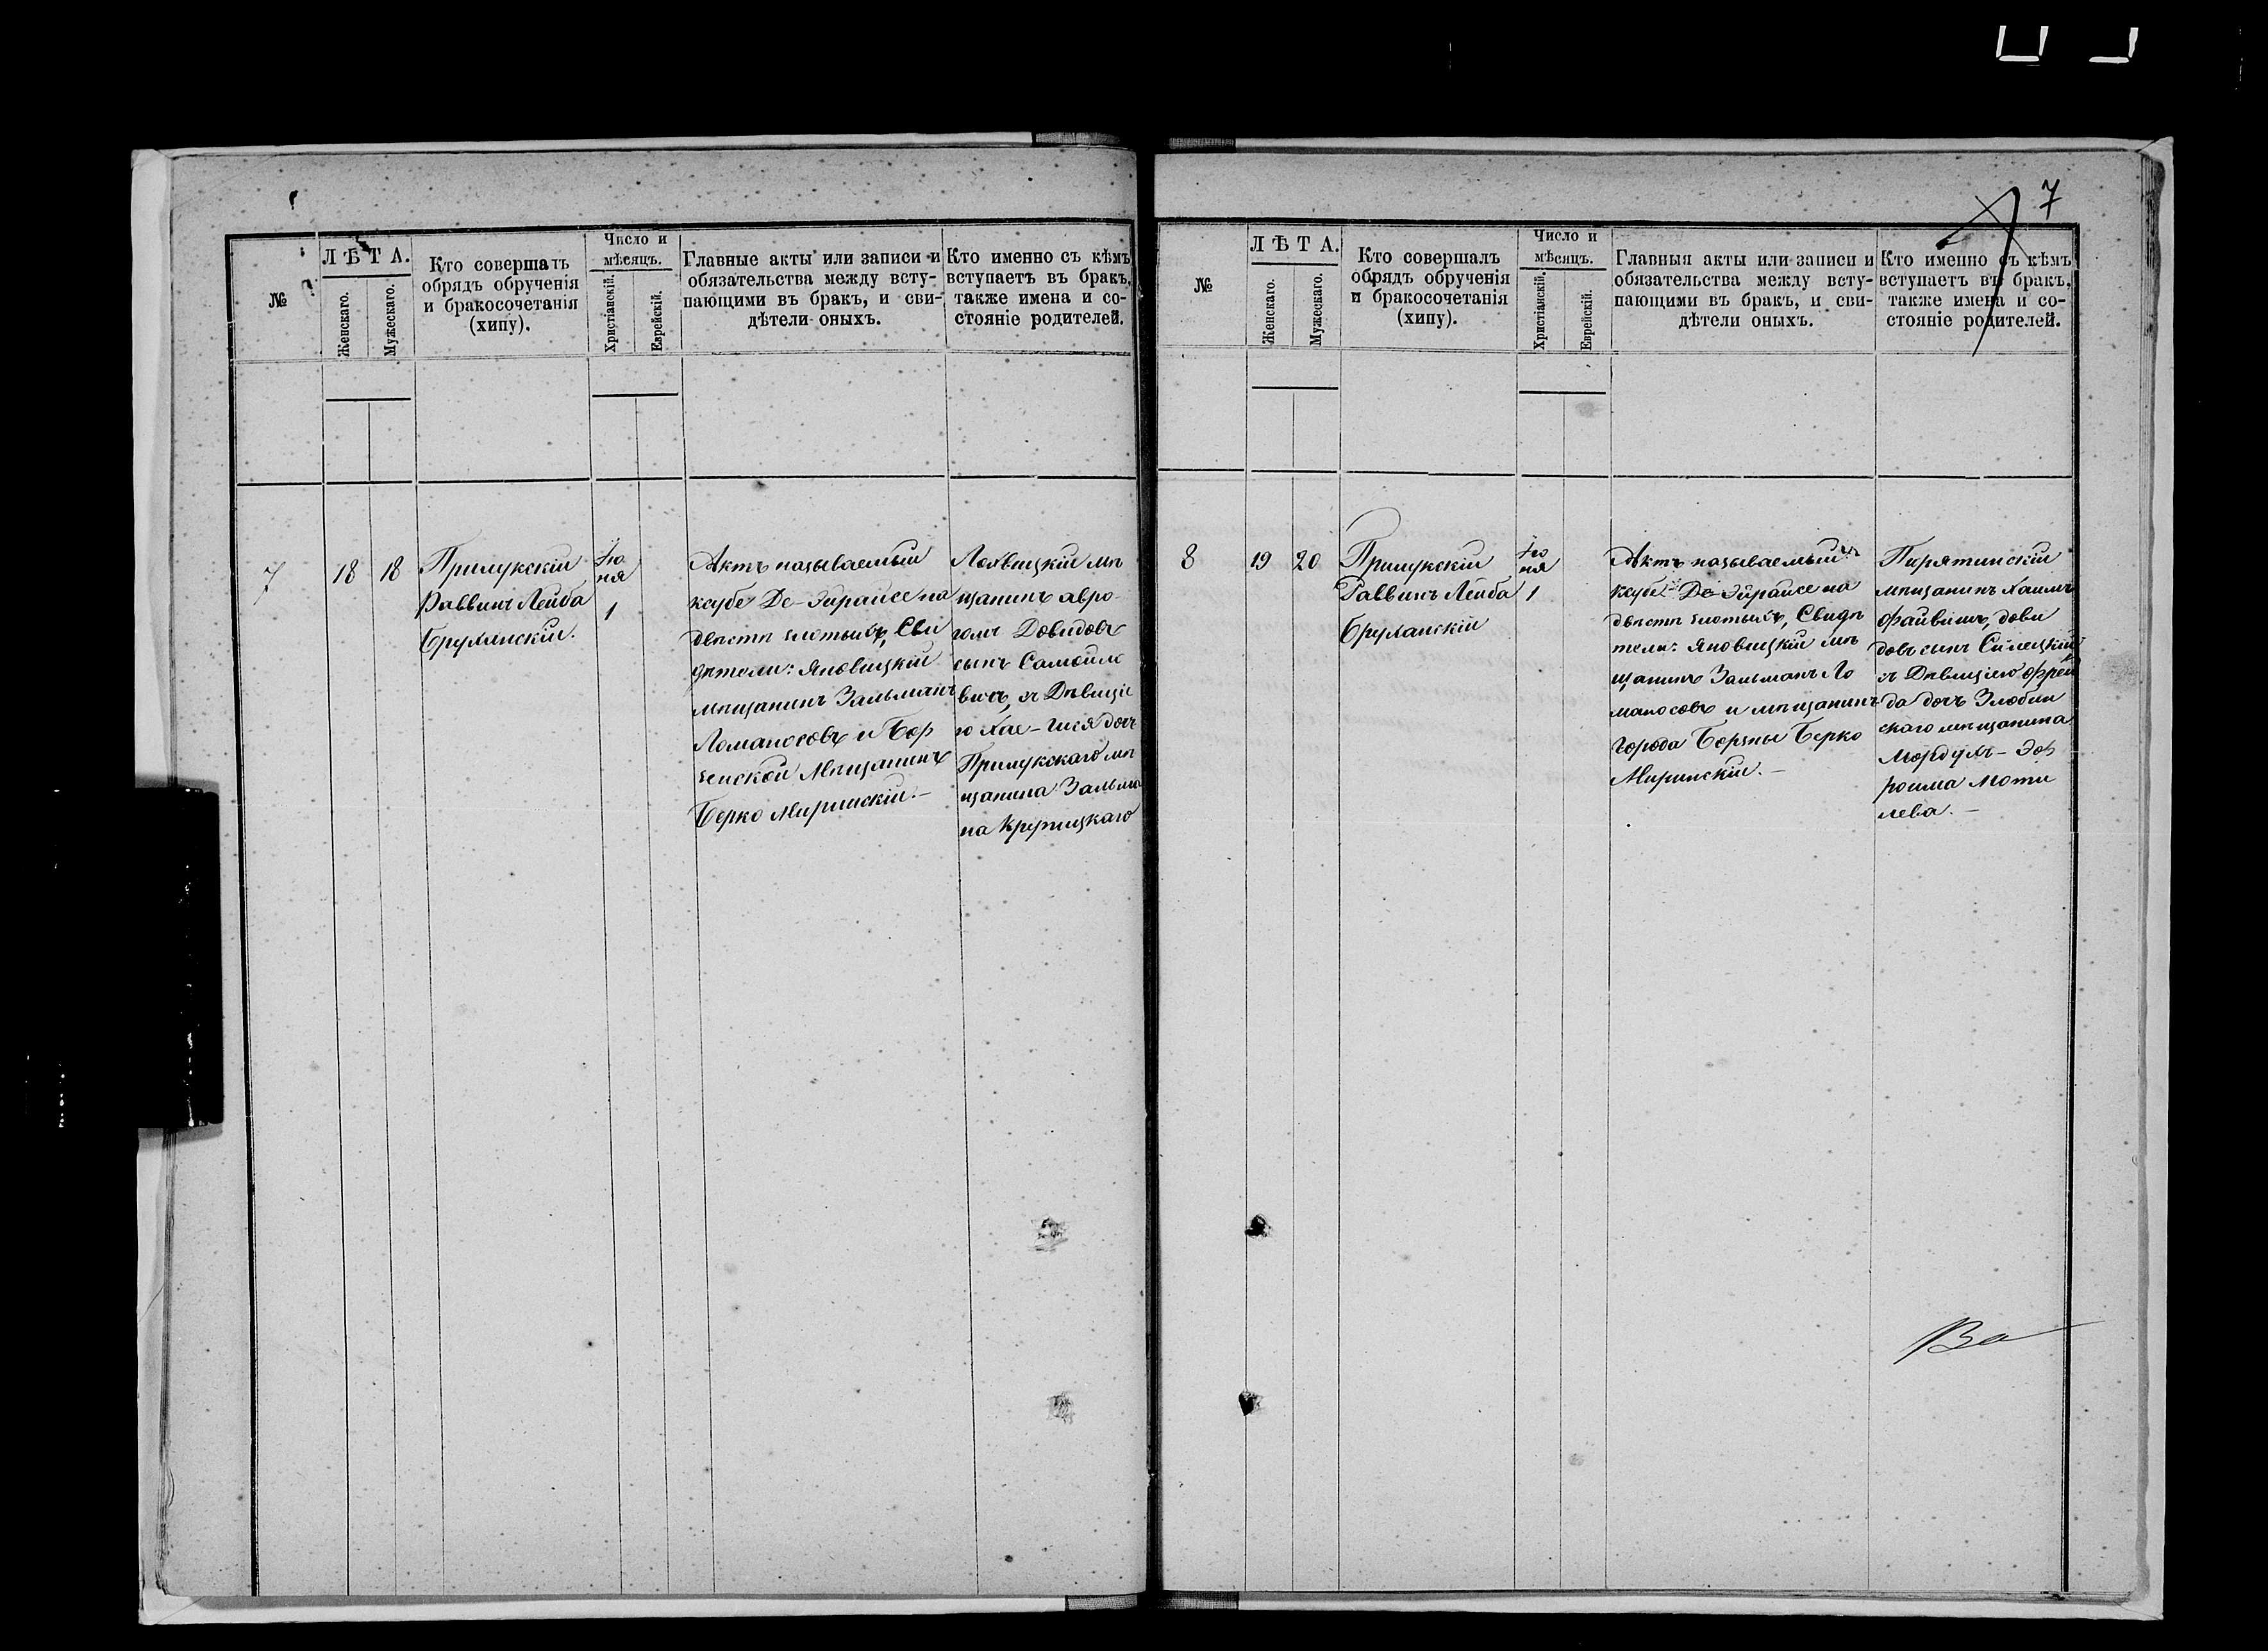 7
№
ЛѢТА.
Женскаго.
Мужескаго.
Кто совершалъ
обрядъ обрученія
и бракосочетанія
(хипу).
Число и
мѣсяцъ.
Христіанскій.
Еврейскій.
Главные акты или записи и
обязательства между всту-
пающими въ бракъ, и сви-
дѣтели оныхъ.
Кто именно съ кѣмъ
вступаетъ въ бракъ,
также имена и со-
стояніе родителей.
7
18
18
Прилукскій
Раввинъ Лейба
Бруханскій.
Iю
ня
1
Актъ называемый
ксубе Де-Эйрайсе на
двѣсти злотыхъ, Сви
дѣтели: Яновицкій
мѣщанинъ Зальманъ
Ломаносовъ и Бор
зенской Мѣщанинъ
Берко Миринскій.-
мѣ
щанинъ авро-
гомъ Довидовъ
сынъ Самойло
вичъ, съ Дѣвицiе
ю Хае- дочъ
Прилукскаго мѣ
щанина Зальма
на
№
ЛѢТА.
Женскаго.
Мужескаго.
Кто совершалъ
обрядъ обрученія
и бракосочетанія
(хипу).
Число и
мѣсяцъ.
Христіанскій.
Еврейскій.
Главныя акты или записи и
обязательства между всту-
пающими въ бракъ, и сви-
дѣтели оныхъ.
Кто именно съ кѣмъ
вступаетъ въ бракъ,
также имена и со-
стояніе родителей.
8
19
20
Прилукскій
Раввинъ Лейба
Бруханскій
Iю
ня
1
Актъ называемый
ксубе Де-Эйрайсе на
двѣсти злотыхъ, Свидѣ
тели: Яновицкій мѣ
щанинъ Зальманъ Ло
маносовъ и мѣщанинъ
города Борзны Берко
Миринскій.-
Пирятинскій
мѣщанинъ Хаимъ
Файвишъ, дови
довъ сынъ Силецкій
съ Дѣвицiею Фрей
да дочъ Злобин
скаго мѣщанина
Мордухъ-Эф
роима Моти
лева.-